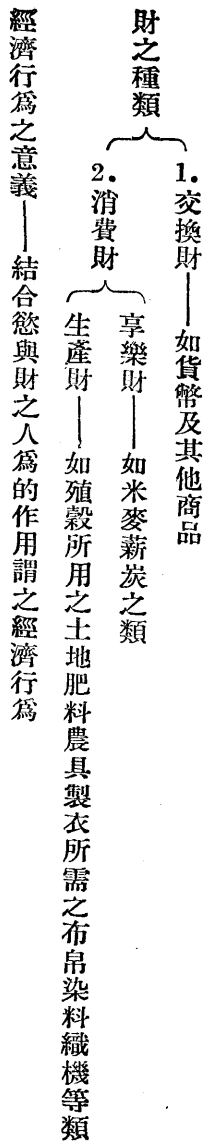 財之種類
1.交換財——如貨幣及其他商品
2.消費財
享樂財——如米麥薪炭之類
生產財——如殖穀所用之土地肥料農具製衣所需之布帛染料織機等類
經濟行爲之意義——結合慾與財之人爲的作用謂之經濟行爲